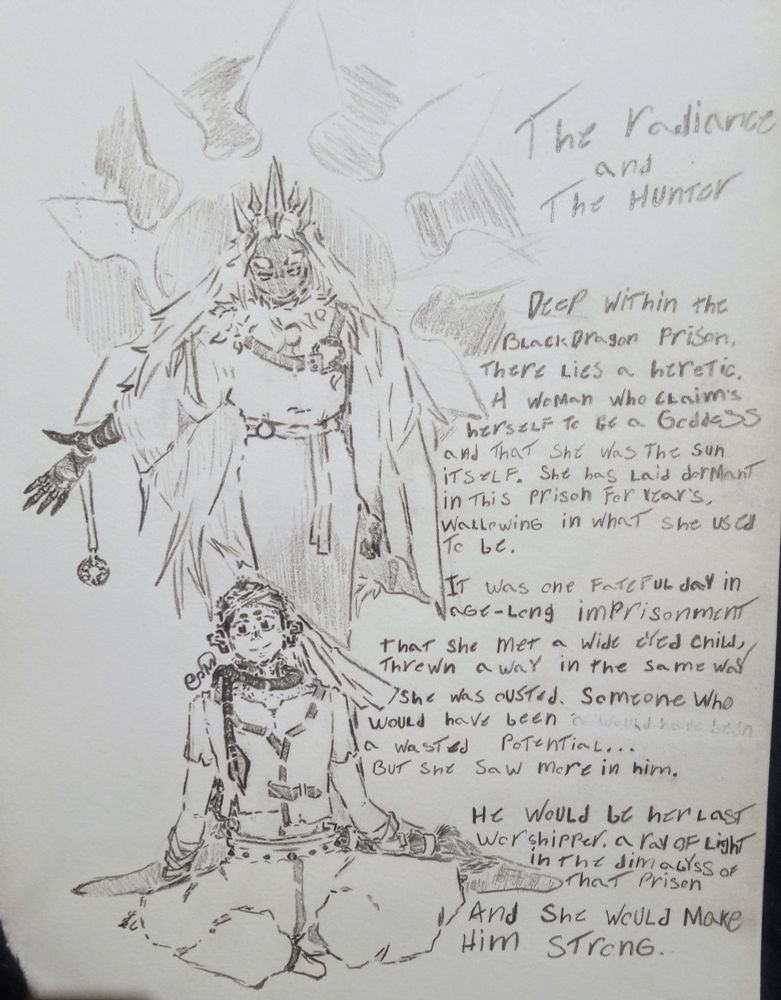 The radiance
and
The Hunter
Deep within the
Black Dragon Prison,
There lies a heretic.
A woman who claim's
herself to be a Goddess
and that she was the sun
itself. She has laid dormant
in this prison for year's,
wallowing in what she used
to be.
It was one fateful day in
age-long imprisonment
that she met a wide eyed child,
Thrown away in the same way
she was ousted. Someone who
would have been a would have been
a wasted potential...
But she saw more in him.
He would be her last
worshipper. a ray of light
in the dim abyss of
that prison
And she would make
him strong.